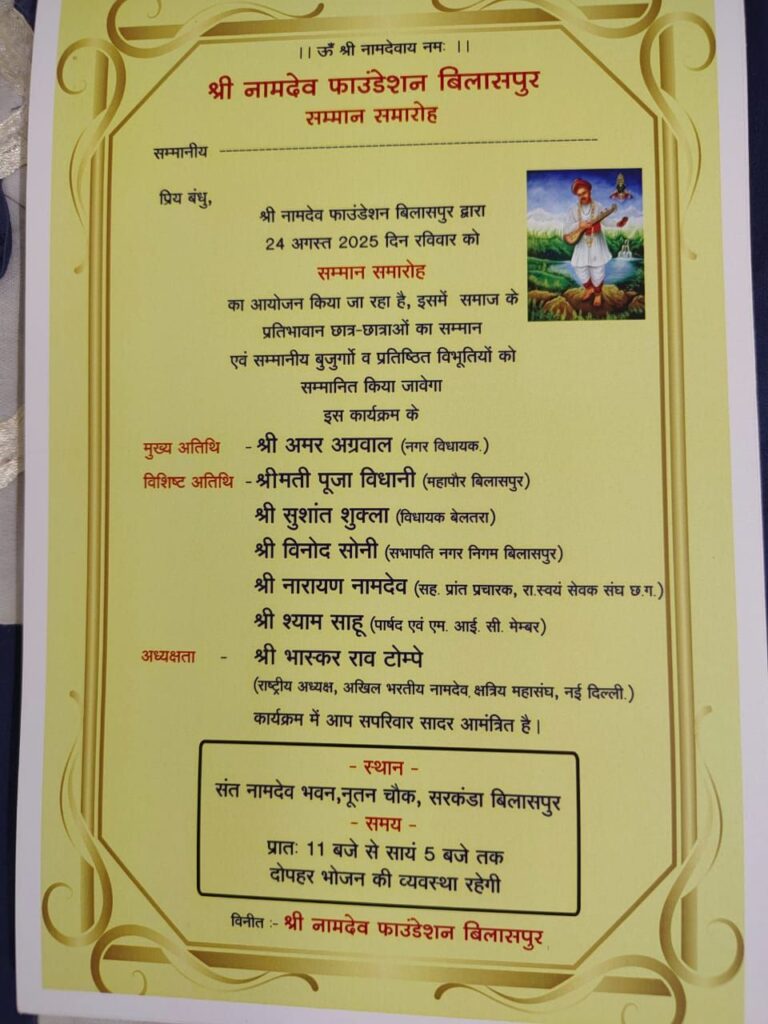 ।। ऊँ श्री नामदेवाय नमः ।।
श्री नामदेव फाउंडेशन बिलासपुर
सम्मान समारोह
सम्मानीय ------------------------------------------------------------
प्रिय बंधु,
श्री नामदेव फाउंडेशन बिलासपुर द्वारा
24 अगस्त 2025 दिन रविवार को
सम्मान समारोह
का आयोजन किया जा रहा है, इसमें समाज के
प्रतिभावान छात्र-छात्राओं का सम्मान
एवं सम्मानीय बुजुर्गाो व प्रतिष्ठित विभूतियों को
सम्मानित किया जावेगा
इस कार्यक्रम के
मुख्य अतिथि - श्री अमर अग्रवाल (नगर विधायक.)
विशिष्ट अतिथि - श्रीमती पूजा विधानी (महापौर बिलासपुर)
श्री सुशांत शुक्ला (विधायक बेलतरा)
श्री विनोद सोनी (सभापति नगर निगम बिलासपुर)
श्री नारायण नामदेव (सह. प्रांत प्रचारक, रा.स्वयं सेवक संघ छ.ग.)
श्री श्याम साहू (पार्षद एवं एम. आई. सी. मेम्बर)
अध्यक्षता - श्री भास्कर राव टोम्पे
(राष्ट्रीय अध्यक्ष, अखिल भरतीय नामदेव क्षत्रिय महासंघ, नई दिल्ली.)
कार्यक्रम में आप सपरिवार सादर आमंत्रित है।
- स्थान -
संत नामदेव भवन,नूतन चौक, सरकंडा बिलासपुर
- समय -
प्रातः 11 बजे से सायं 5 बजे तक
दोपहर भोजन की व्यवस्था रहेगी
विनीत :- श्री नामदेव फाउंडेशन बिलासपुर